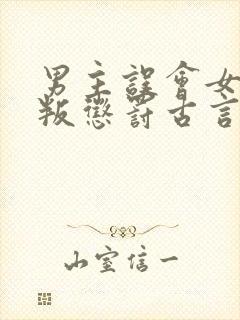 男主误會女
叛懲罰古言
山室信一